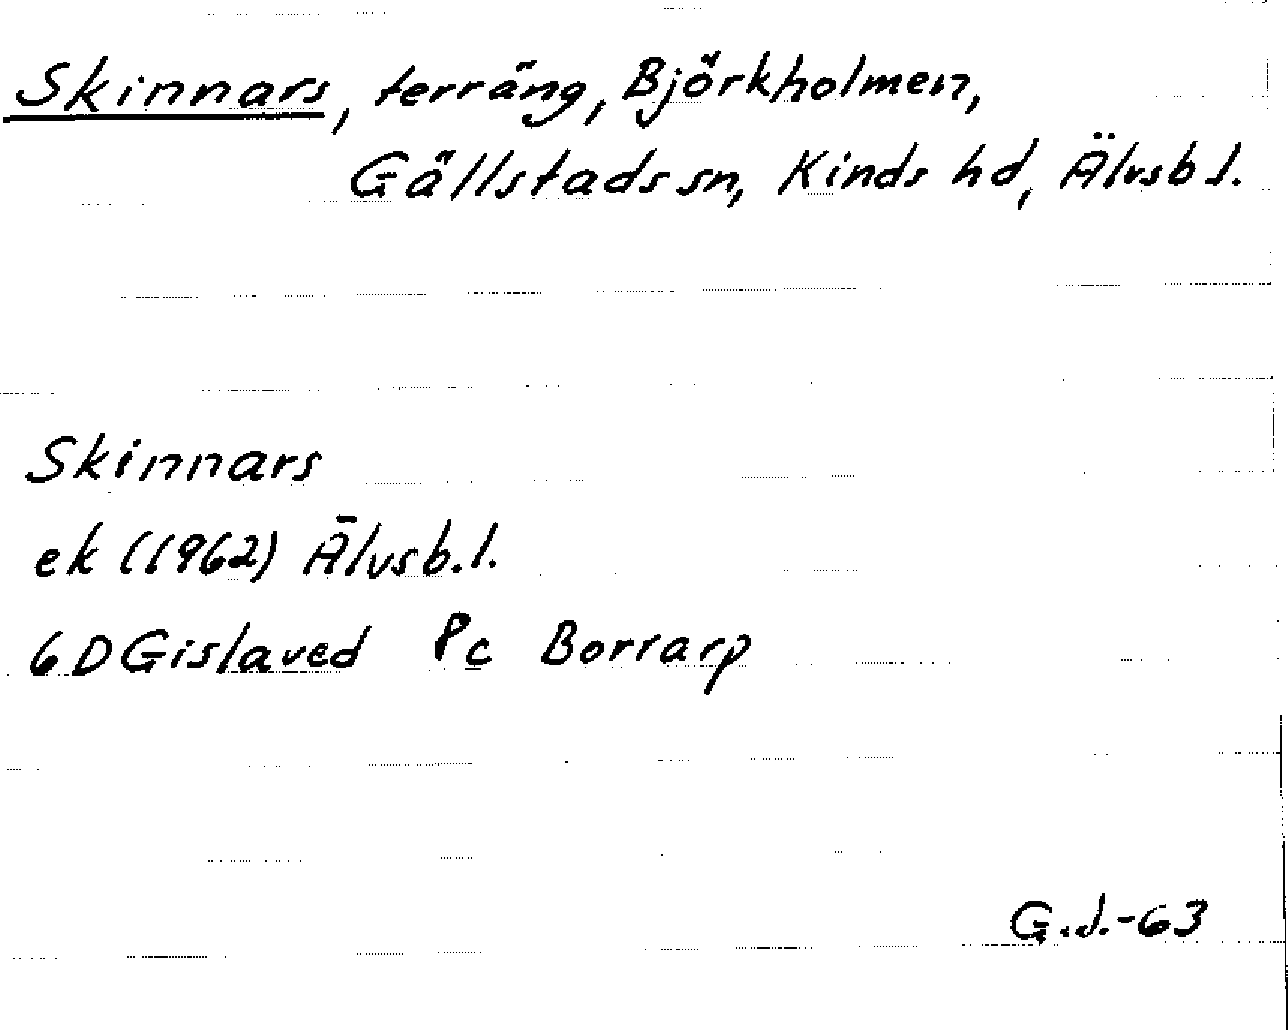 Skinnars, terräng, Björkholmen,
Gällstads sn, Kinds hd, Älvsb l.
Skinnars
ek (1962) Älvsb.l.
6D Gislaved 8c Borrarp
G.J.-63